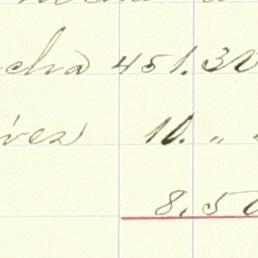 cha 451.30
vez 10. "
8.50